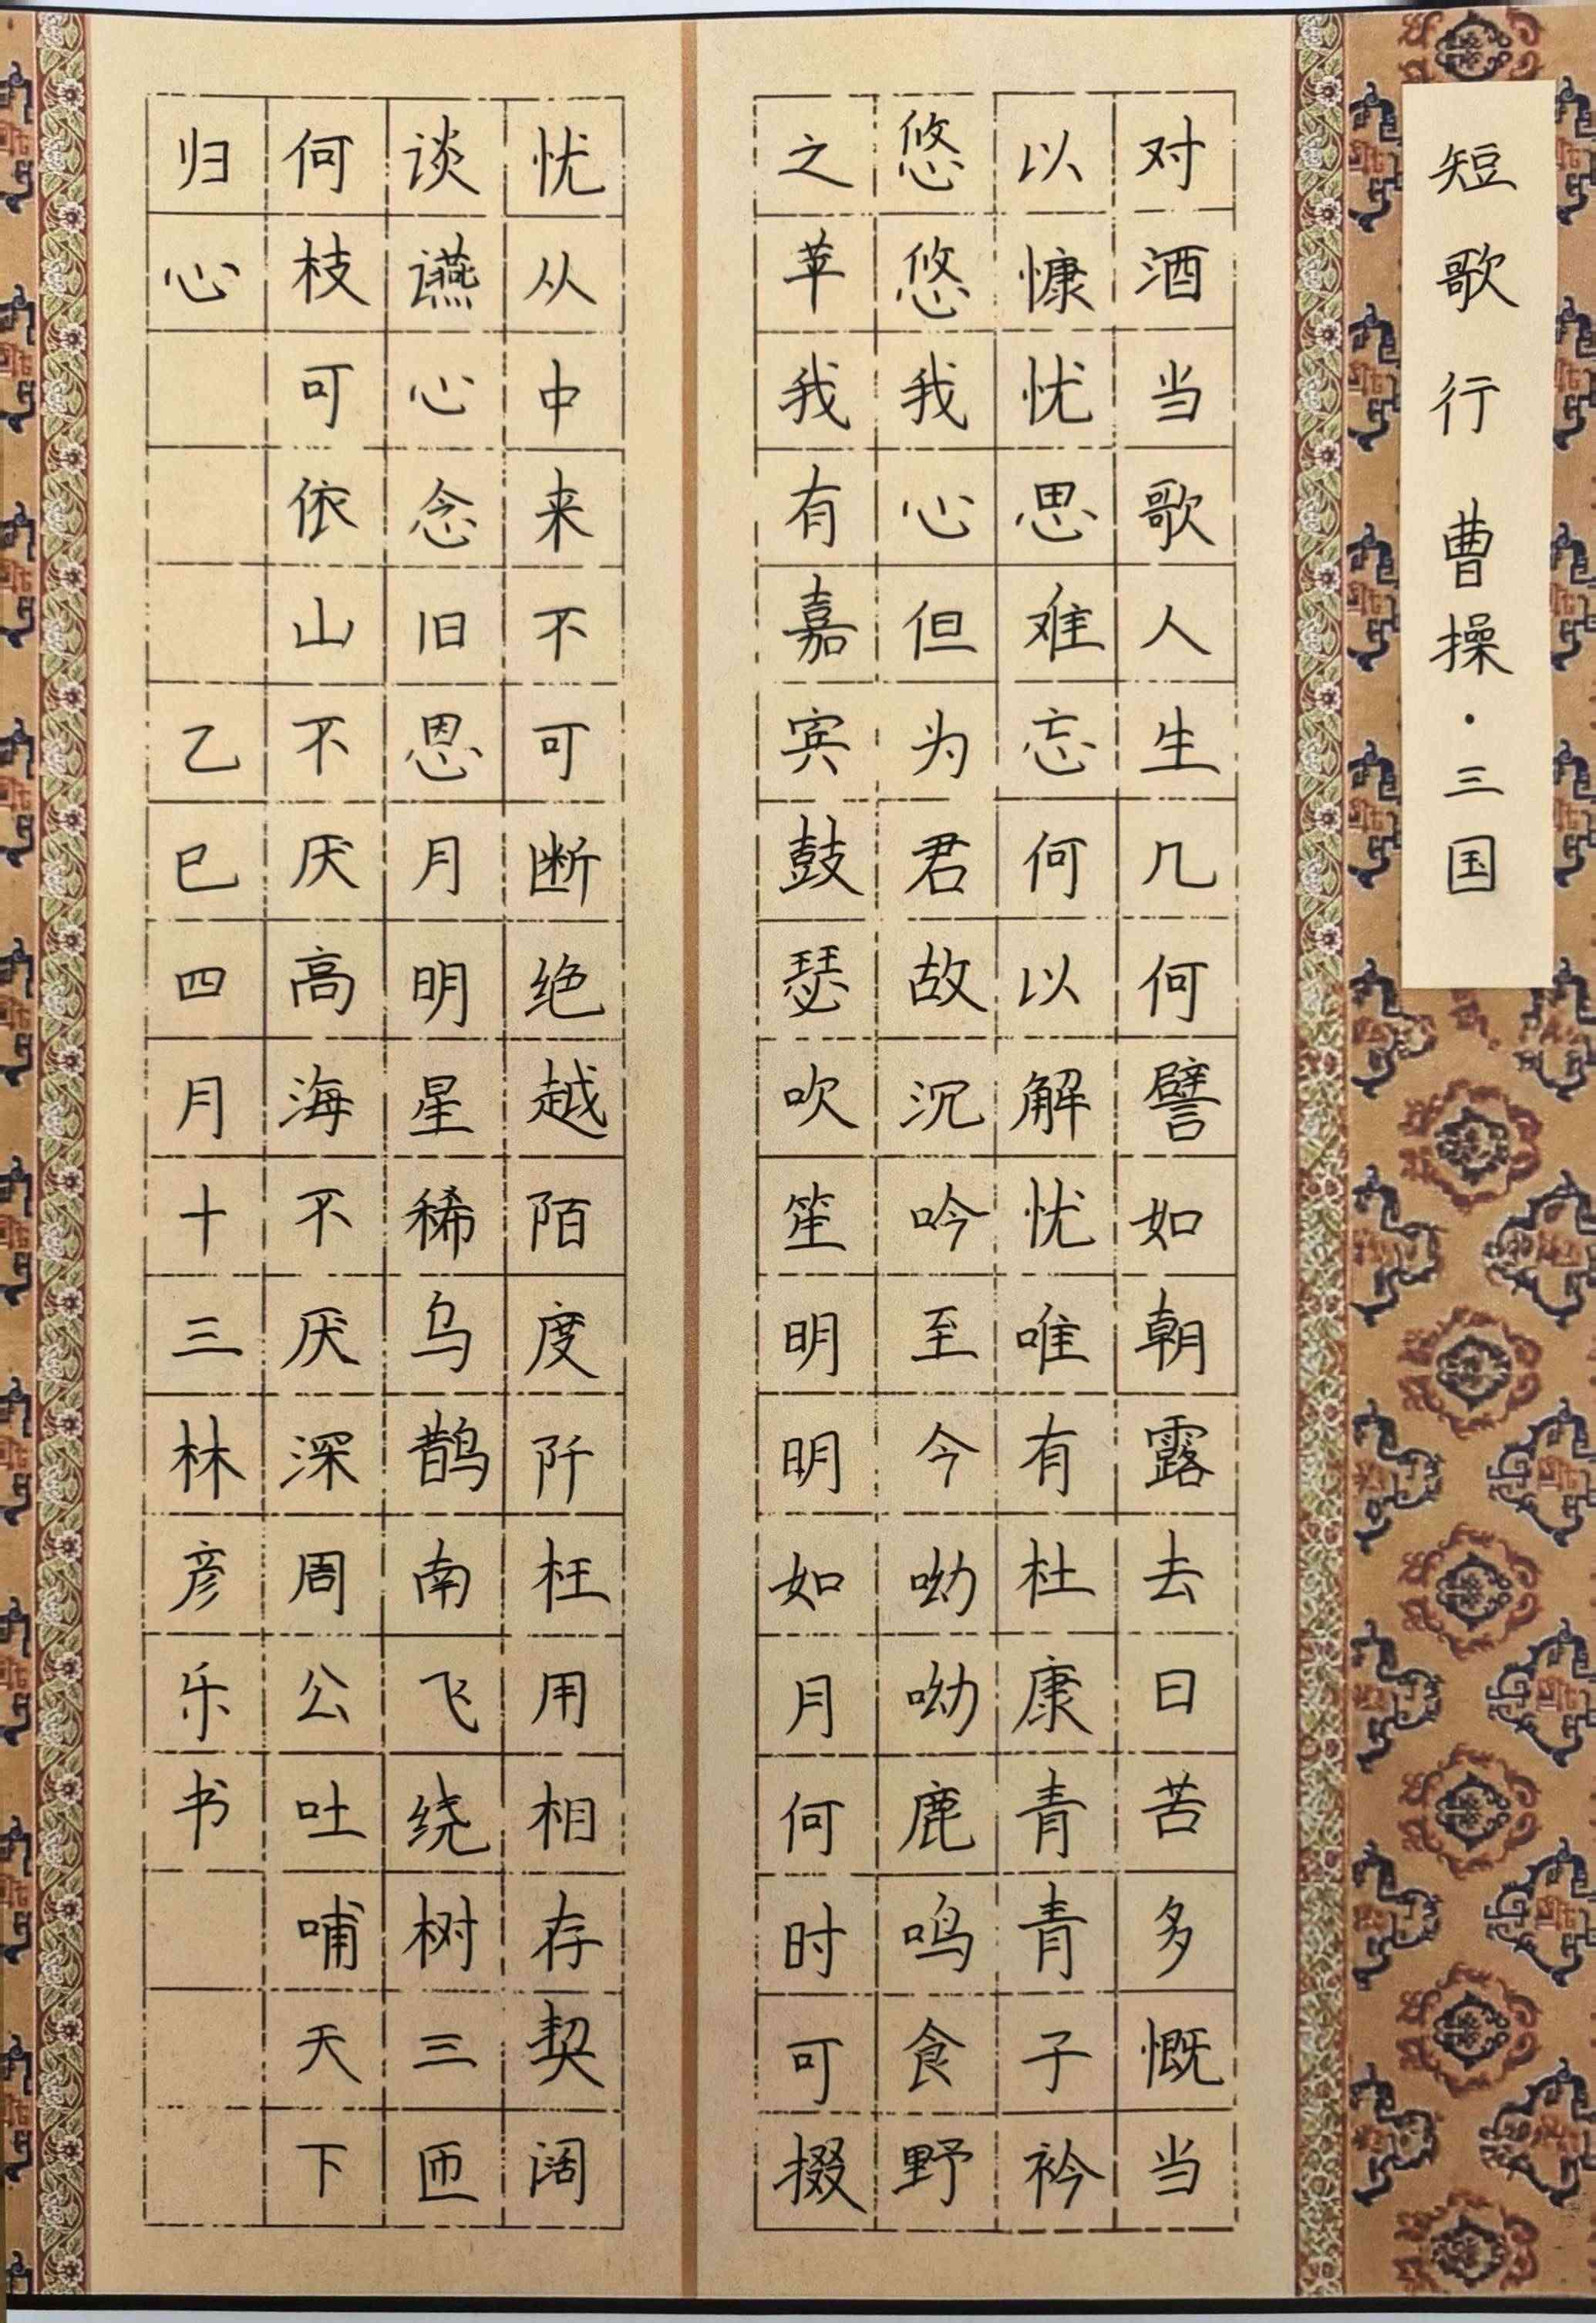 短歌行 曹操·三国
对酒当歌人生几何譬如朝露去日苦多慨当
以慷忧思难忘何以解忧唯有杜康青青子衿
悠悠我心但为君故沉吟至今呦呦鹿鸣食野
之苹我有嘉宾鼓瑟吹笙明明如月何时可掇
忧从中来不可断绝越陌度阡枉用相存契阔
谈䜩心念旧恩月明星稀乌鹊南飞绕树三匝
何枝可依山不厌高海不厌深周公吐哺天下
归心 乙巳四月十三林彦乐书